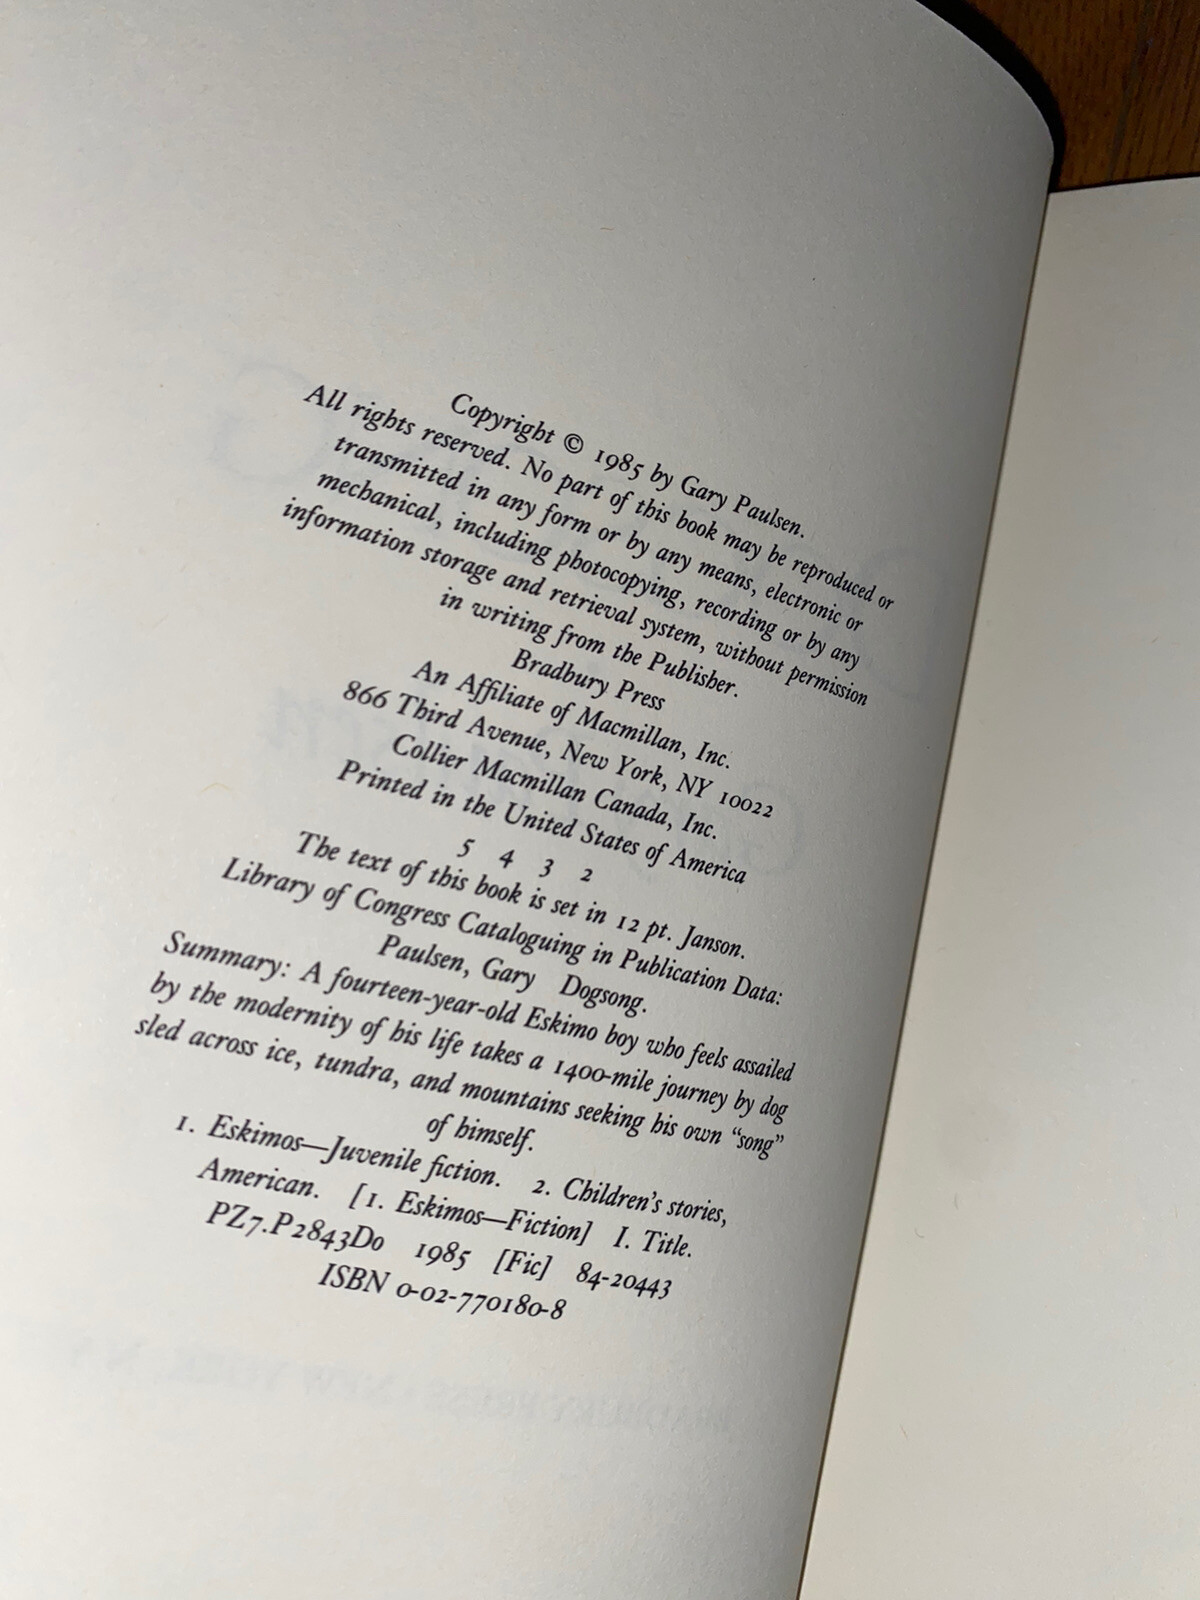 Copyright © 1985 by Gary Paulsen.
All rights reserved. No part of this book may be reproduced or
transmitted in any form or by any means, electronic or
mechanical, including photocopying, recording or by any
information storage and retrieval system, without permission
in writing from the Publisher.
Bradbury Press
An Affiliate of Macmillan, Inc.
866 Third Avenue, New York, NY 10022
Collier Macmillan Canada, Inc.
Printed in the United States of America
5 4 3 2
The text of this book is set in 12 pt. Janson.
Library of Congress Cataloguing in Publication Data:
Paulsen, Gary Dogsong.
Summary: A fourteen-year-old Eskimo boy who feels assailed
by the modernity of his life takes a 1400-mile journey by dog
sled across ice, tundra, and mountains seeking his own “song”
of himself.
1. Eskimos—Juvenile fiction. 2. Children’s stories,
American. [1. Eskimos—Fiction] I. Title.
PZ7.P2843Do 1985 [Fic] 84-20443
ISBN 0-02-770180-8